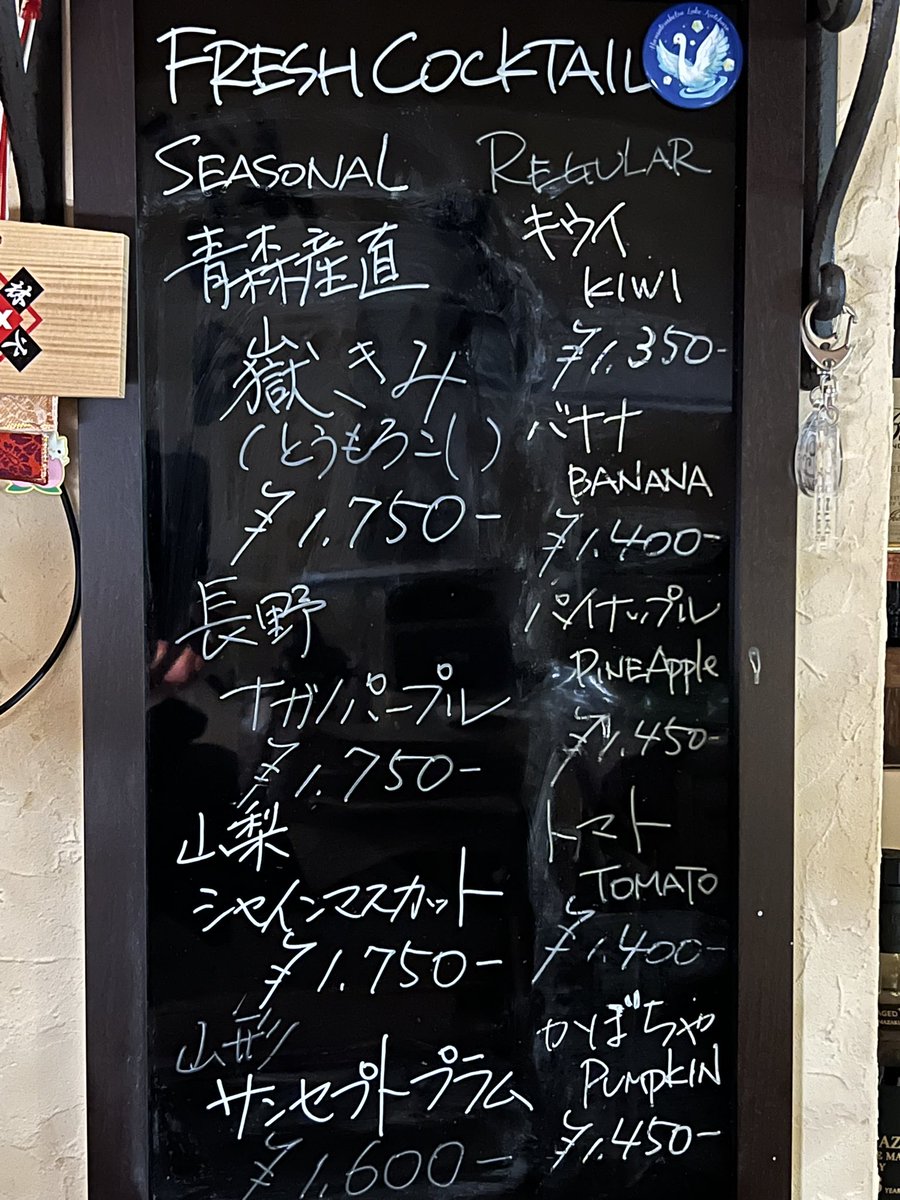 FRESH COCKTAIL
SEASONAL
青森産直
嶽きみ
(とうもろこし)
¥1,750-
長野
ナガノパープル
¥1,750-
山梨
シャインマスカット
¥1,750-
山形
サンセプトプラム
¥1,600-
REGULAR
キウイ
KIWI
¥1,350-
バナナ
BANANA
¥1,400-
パイナップル
PINEApple
¥1,450-
トマト
TOMATO
¥1,400-
かぼちゃ
PUMPKIN
¥1,450-
AGED